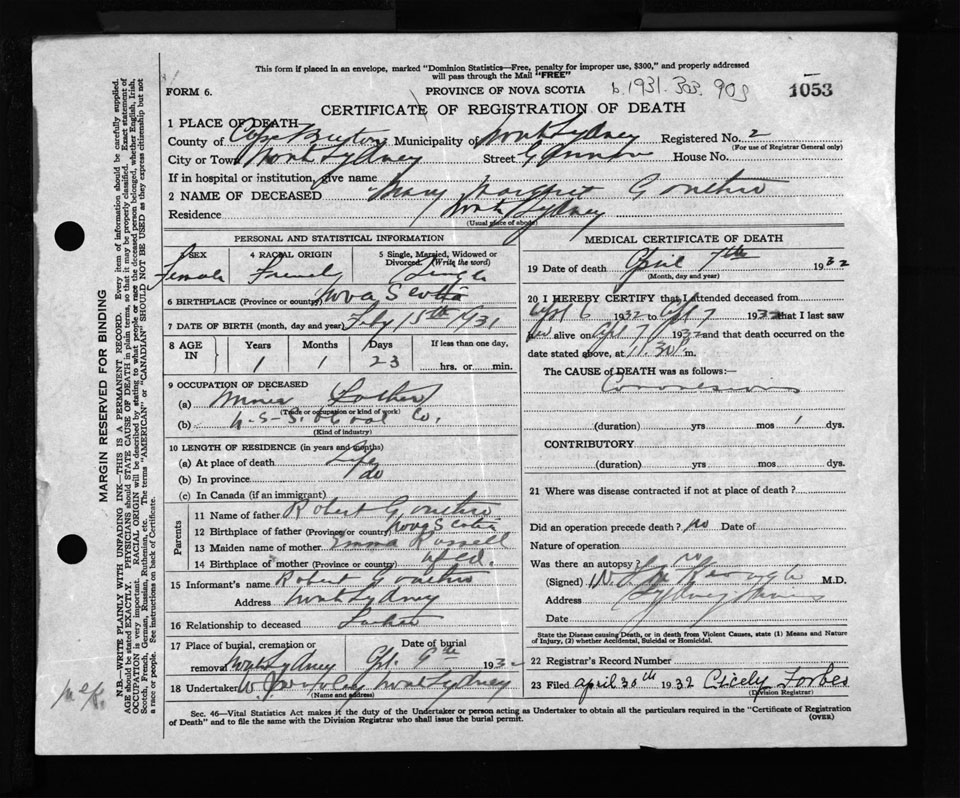 This form if placed in an envelope, marked "Dominion Statistics—Free, penalty for improper use, $300," and properly addressed
will pass through the Mail "FREE"
FORM 6.
PROVINCE OF NOVA SCOTIA
b. 1931. 908
1053
CERTIFICATE OF REGISTRATION OF DEATH
1 PLACE OF DEATH
County of Cape Breton Municipality of North Sydney Registered No. 2
(For use of Registrar General only)
City or Town North Sydney Street House No.
If in hospital or institution, give name
2 NAME OF DECEASED Mary Margret Gouthro
Residence North Sydney
(Usual place of abode)
PERSONAL AND STATISTICAL INFORMATION
3 SEX Female
4 RACIAL ORIGIN French
5 Single, Married, Widowed or Divorced. (Write the word) Single
6 BIRTHPLACE (Province or country) Nova Scotia
7 DATE OF BIRTH (month, day and year) Feby 15th 1931
8 AGE IN
Years Months Days If less than one day,
1 1 23 hrs. or min.
9 OCCUPATION OF DECEASED
(a) Miner Father
(Trade or occupation or kind of work)
(b) N.S.S. & Coal Co.
(Kind of industry)
10 LENGTH OF RESIDENCE (in years and months)
(a) At place of death Life
(b) In province do
(c) In Canada (if an immigrant)
Parents
11 Name of father Robert Gouthro
12 Birthplace of father (Province or country) Nova Scotia
13 Maiden name of mother Emma Russell
14 Birthplace of mother (Province or country) Nfld.
15 Informant's name Robert Gouthro
Address North Sydney
16 Relationship to deceased Father
17 Place of burial, cremation or Date of burial
removal North Sydney Apl. 9th 1932
18 Undertaker North Sydney
(Name and address)
MEDICAL CERTIFICATE OF DEATH
19 Date of death April 7th 1932
(Month, day and year)
20 I HEREBY CERTIFY that I attended deceased from
Apl 6 1932 to Apl 7 1932 that I last saw
her alive on Apl 7 1932 and that death occurred on
date stated above, at 11.30 m.
The CAUSE of DEATH was as follows:—
Convulsions
(duration) yrs mos 1 dys.
CONTRIBUTORY
(duration) yrs. mos dys.
21 Where was disease contracted if not at place of death?
Did an operation precede death? no Date of
Nature of operation
Was there an autopsy? no
(Signed) M.D.
Address Sydney Mines
Date
State the Disease causing Death, or in death from Violent Causes, state (1) Means and
Nature of Injury, (2) whether Accidental, Suicidal or Homicidal.
22 Registrar's Record Number
23 Filed april 30th 1932 Cicely Forbes
(Division Registrar)
Sec. 46—Vital Statistics Act makes it the duty of the Undertaker or person acting as Undertaker to obtain all the particulars required in the "Certificate of Registration
of Death" and to file the same with the Division Registrar who shall issue the burial permit.
(OVER)
MARGIN RESERVED FOR BINDING
N.B.—WRITE PLAINLY WITH UNFADING INK—THIS IS A PERMANENT RECORD. Every item of information should be carefully supplied.
AGE should be stated EXACTLY. PHYSICIANS should STATE CAUSE OF DEATH in plain terms, so that it may be properly classified. Exact statement of
OCCUPATION is very important. RACIAL ORIGIN will be described by stating to what people or race the deceased person belonged, whether English, Irish,
Scotch, French, German, Russian, Ruthenian, etc. The terms "AMERICAN" or "CANADIAN" SHOULD NOT BE USED as they express citizenship but not
a race or people. See instructions on back of Certificate.